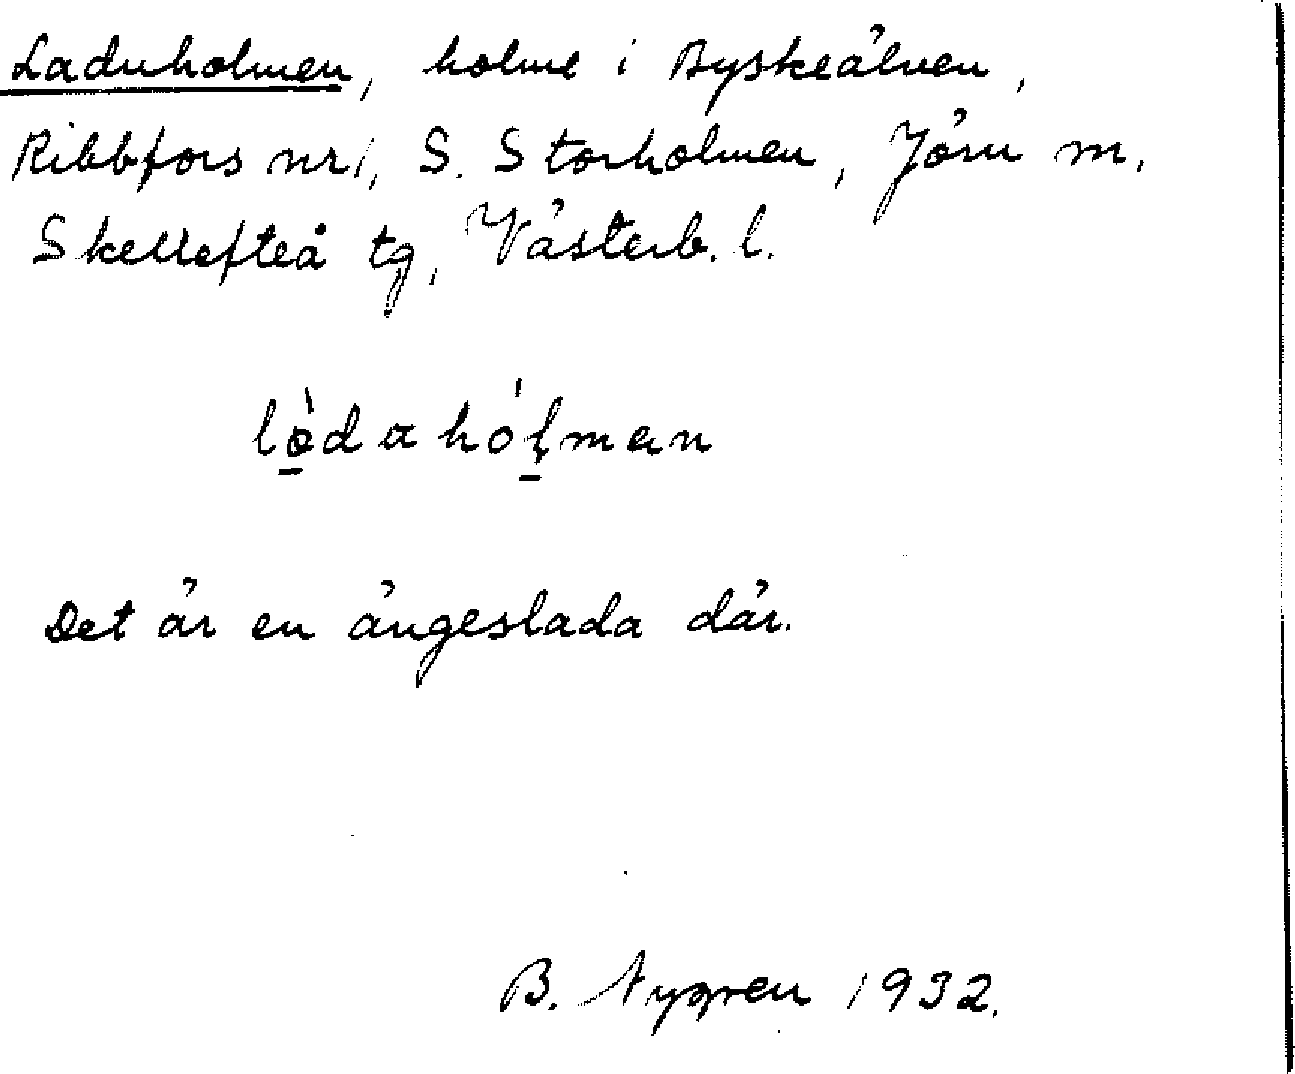 Laduholmen, holme i Byskeälven,
Ribbfors nr 1, S. Storholmen, Jörn m.
Skellefteå tg, Västerb. l.
lòdahólmen
Det är en ängeslada där.
B. Nygren 1932.